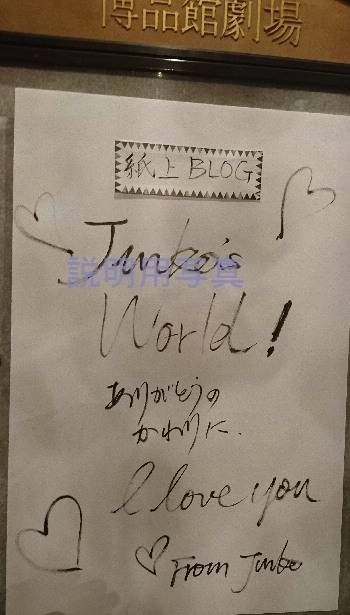 博品館劇場
紙上 BLOG
Junko's
説明用写真
World!
ありがとうの
かわりに.
I love you
From Junko